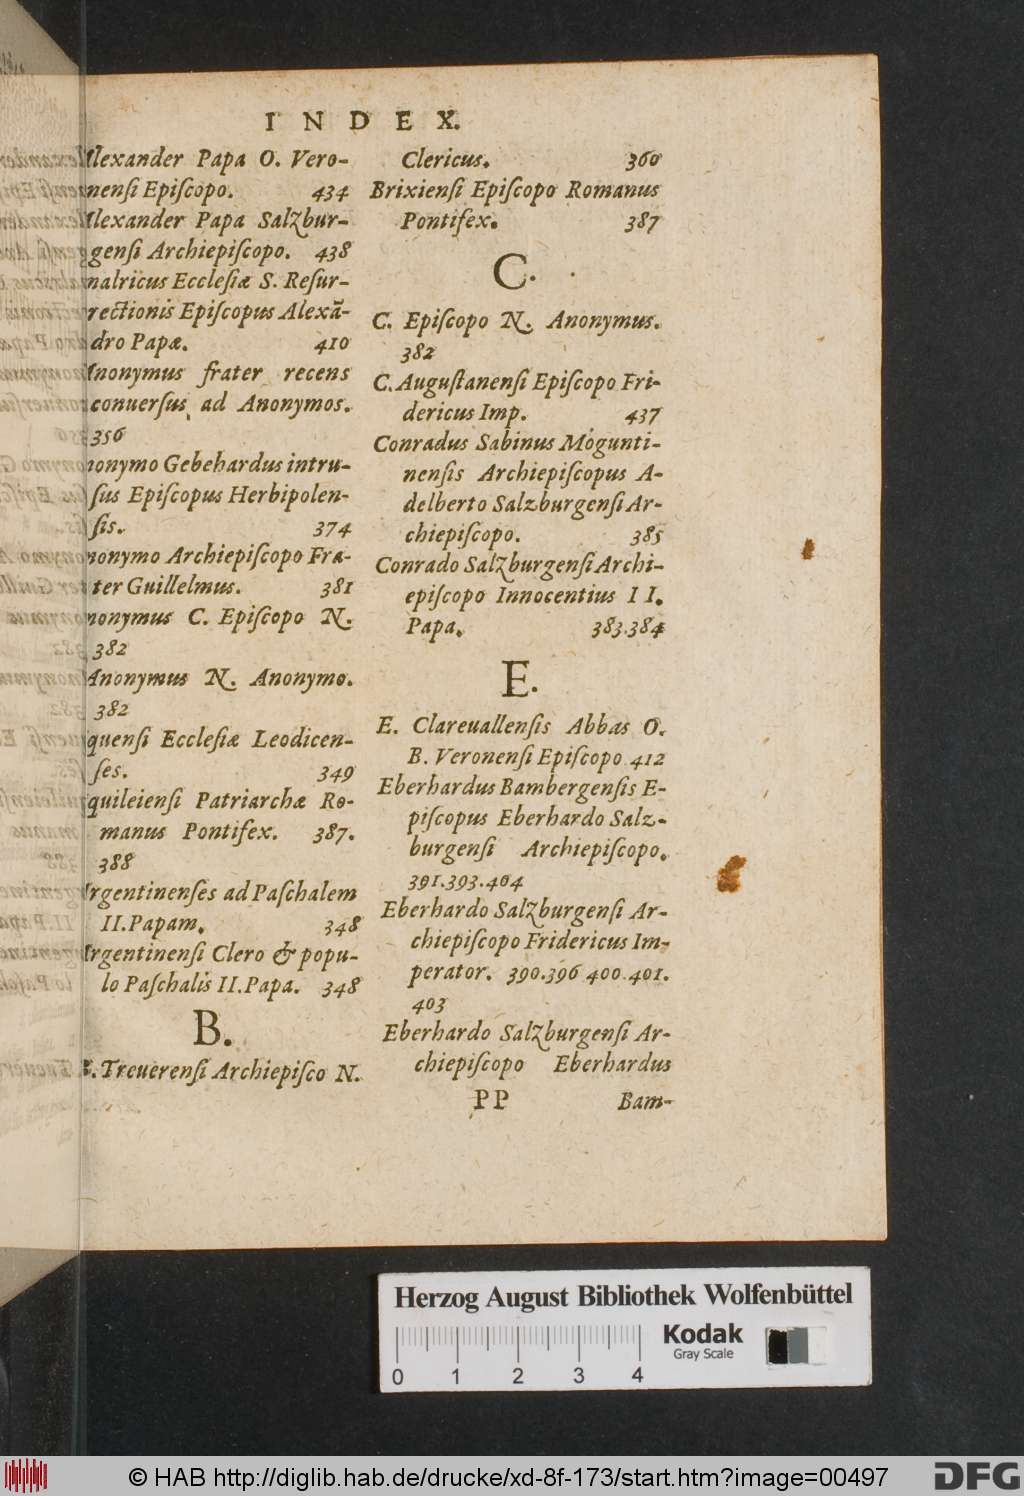 INDEX.
Alexander Papa O. Vero-
nensi Episcopo. 434
Alexander Papa Salzbur-
gensi Archiepiscopo. 438
malricus Ecclesiæ S. Resur-
rectionis Episcopus Alexã-
dro Papæ. 410
Anonymus frater recens
conuersus ad Anonymos.
356
nonymo Gebehardus intru-
sus Episcopus Herbipolen-
sis. 374
nonymo Archiepiscopo Fra-
ter Guillelmus. 381
nonymus C. Episcopo N.
382
Anonymus N. Anonymo.
382
quensi Ecclesiæ Leodicen-
ses. 349
quileiensi Patriarchæ Ro-
manus Pontifex. 387.
388
rgentinenses ad Paschalem
II. Papam. 348
rgentinensi Clero & popu-
lo Paschalis II. Papa. 348
B.
. Treuerensi Archiepisco N.
Clericus. 360
Brixiensi Episcopo Romanus
Pontifex. 387
C.
C. Episcopo N. Anonymus.
382
C. Augustanensi Episcopo Fri-
dericus Imp. 437
Conradus Sabinus Mogunti-
nensis Archiepiscopus A-
delberto Salzburgensi Ar-
chiepiscopo. 385
Conrado Salzburgensi Archi-
episcopo Innocentius II.
Papa. 383.384
E.
E. Clareuallensis Abbas O.
B. Veronensi Episcopo 412
Eberhardus Bambergensis E-
piscopus Eberhardo Salz-
burgensi Archiepiscopo.
391.393.404
Eberhardo Salzburgensi Ar-
chiepiscopo Fridericus Im-
perator. 390.396 400.401.
403
Eberhardo Salzburgensi Ar-
chiepiscopo Eberhardus
PP Bam-
Herzog August Bibliothek Wolfenbüttel
Kodak
Gray Scale
0 1 2 3 4
© HAB http://diglib.hab.de/drucke/xd-8f-173/start.htm?image=00497
DFG